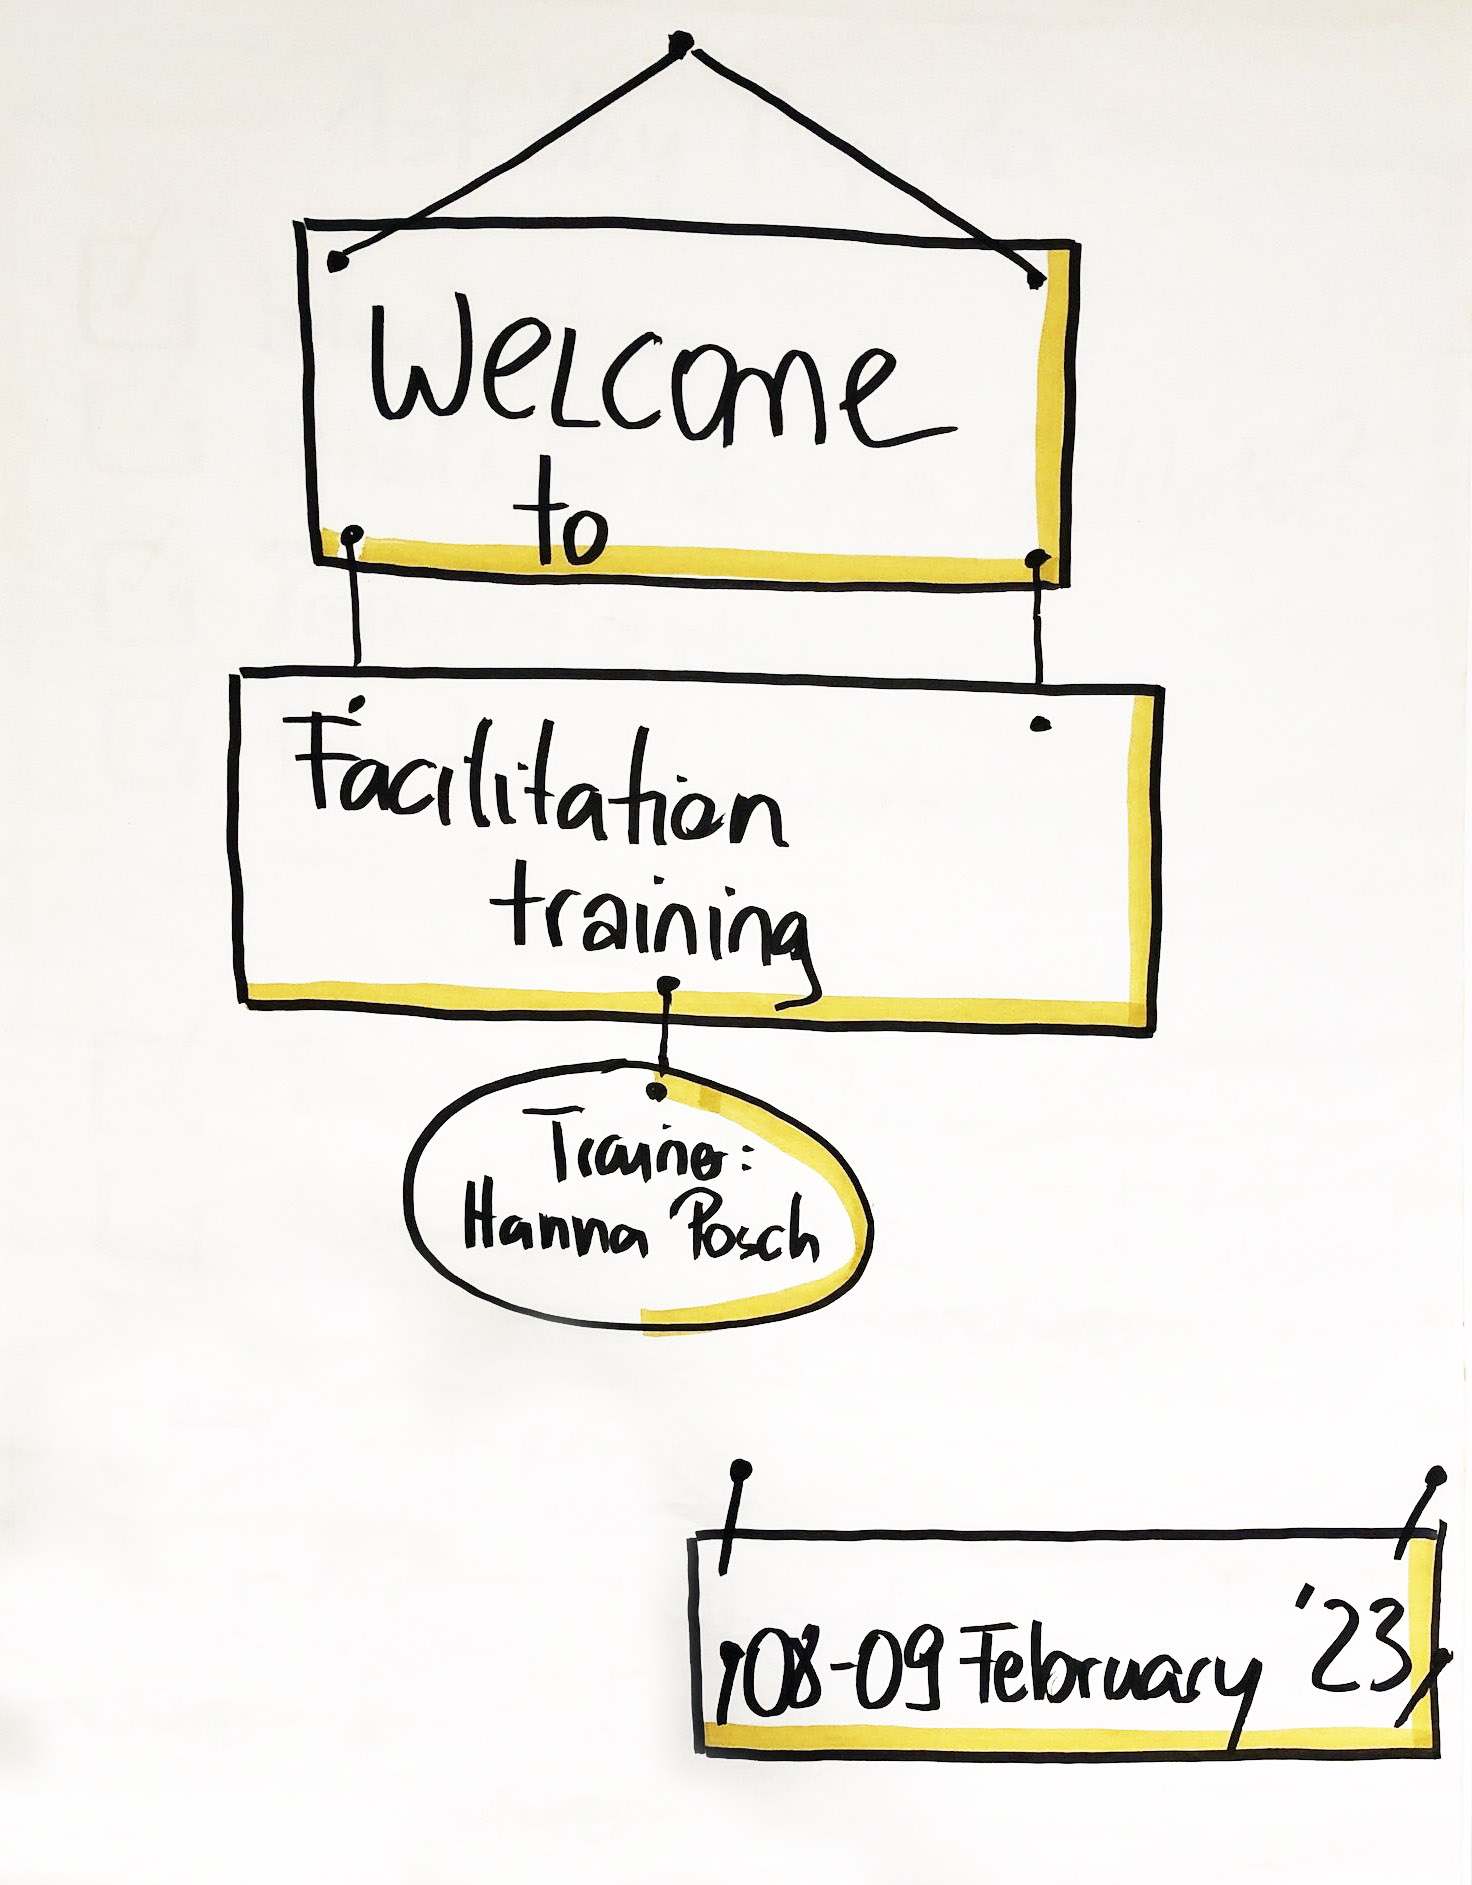 Welcome
to
Facilitation
training
Trainer:
Hanna Posch
08-09 February '23